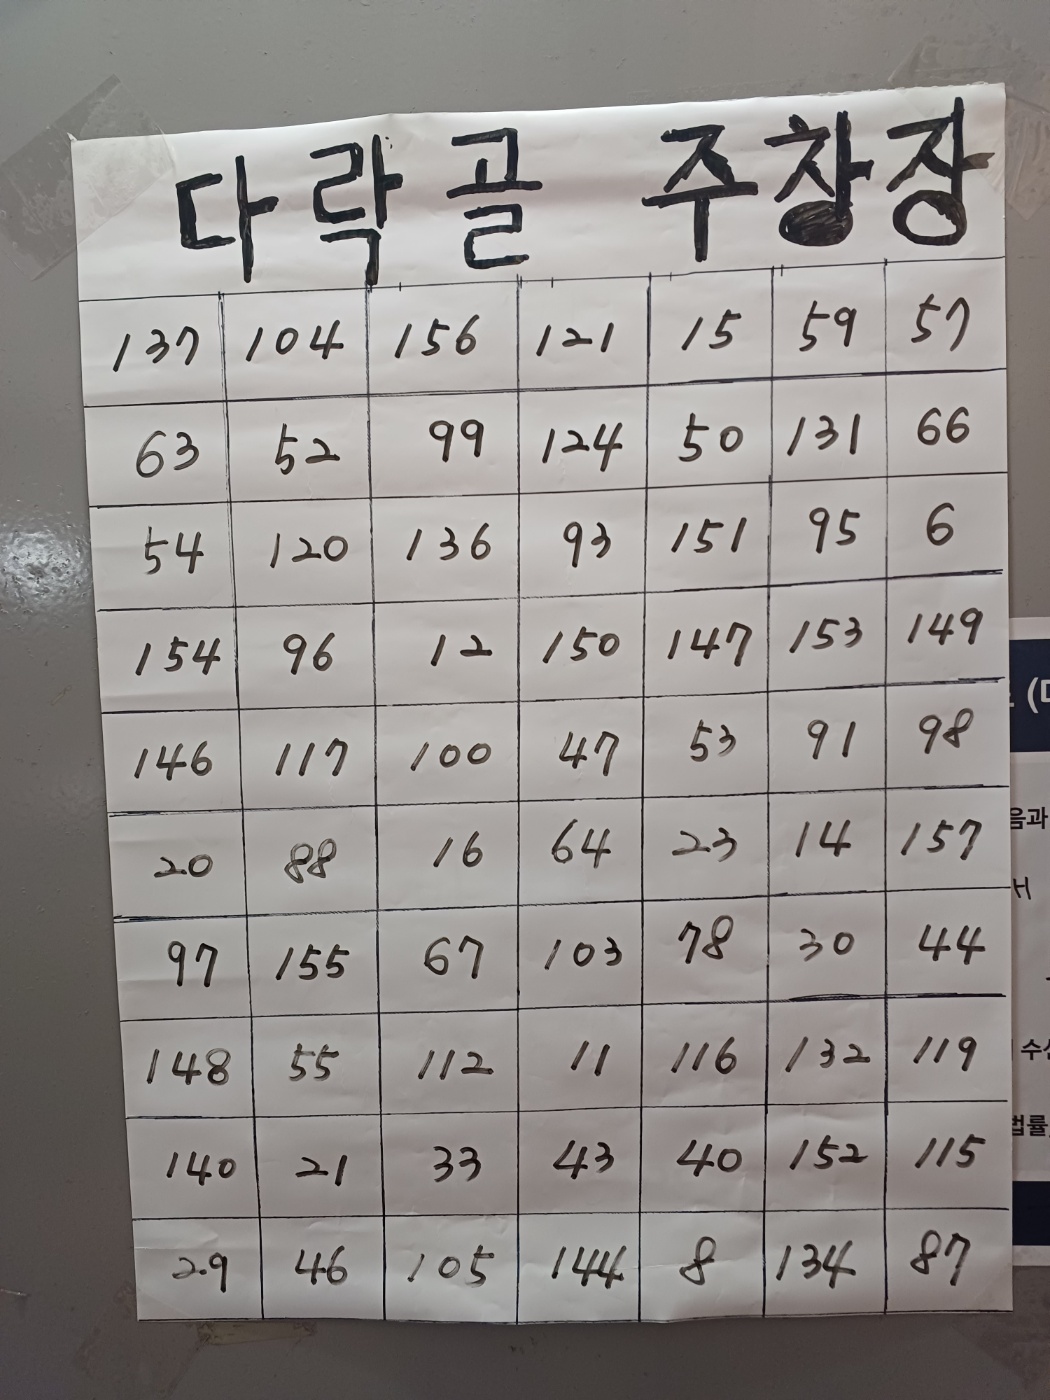 다락골 주창장
137 104 156 121 15 59 57
63 52 99 124 50 131 66
54 120 136 93 151 95 6
154 96 12 150 147 153 149
146 117 100 47 53 91 98
20 88 16 64 23 14 157
97 155 67 103 78 30 44
148 55 112 11 116 132 119
140 21 33 43 40 152 115
29 46 105 144 8 134 87
음과
서
법률